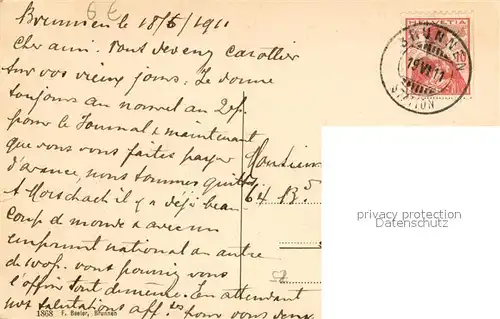 6 E
Brunnen le 18/5/1911
Cher ami. Vous devenez carottier
sur vos vieux jours. Je donne
toujours au nouvel an 2 f.
pour le Journal & maintenant
que vous vous faites payer
d'avance, nous sommes quittes
A Morschach il y a déjà beau-
coup de monde & avec un
emprunt national en autre
vous pourriez vous
l'offrir tout de même. En attendant
nos salutations aff. pour vous deux
1868 F. Beeler, Brunnen
HELVETIA
BRUNNEN
19 VI 11
STATION
Monsieur
64 Bd
privacy protection
Datenschutz